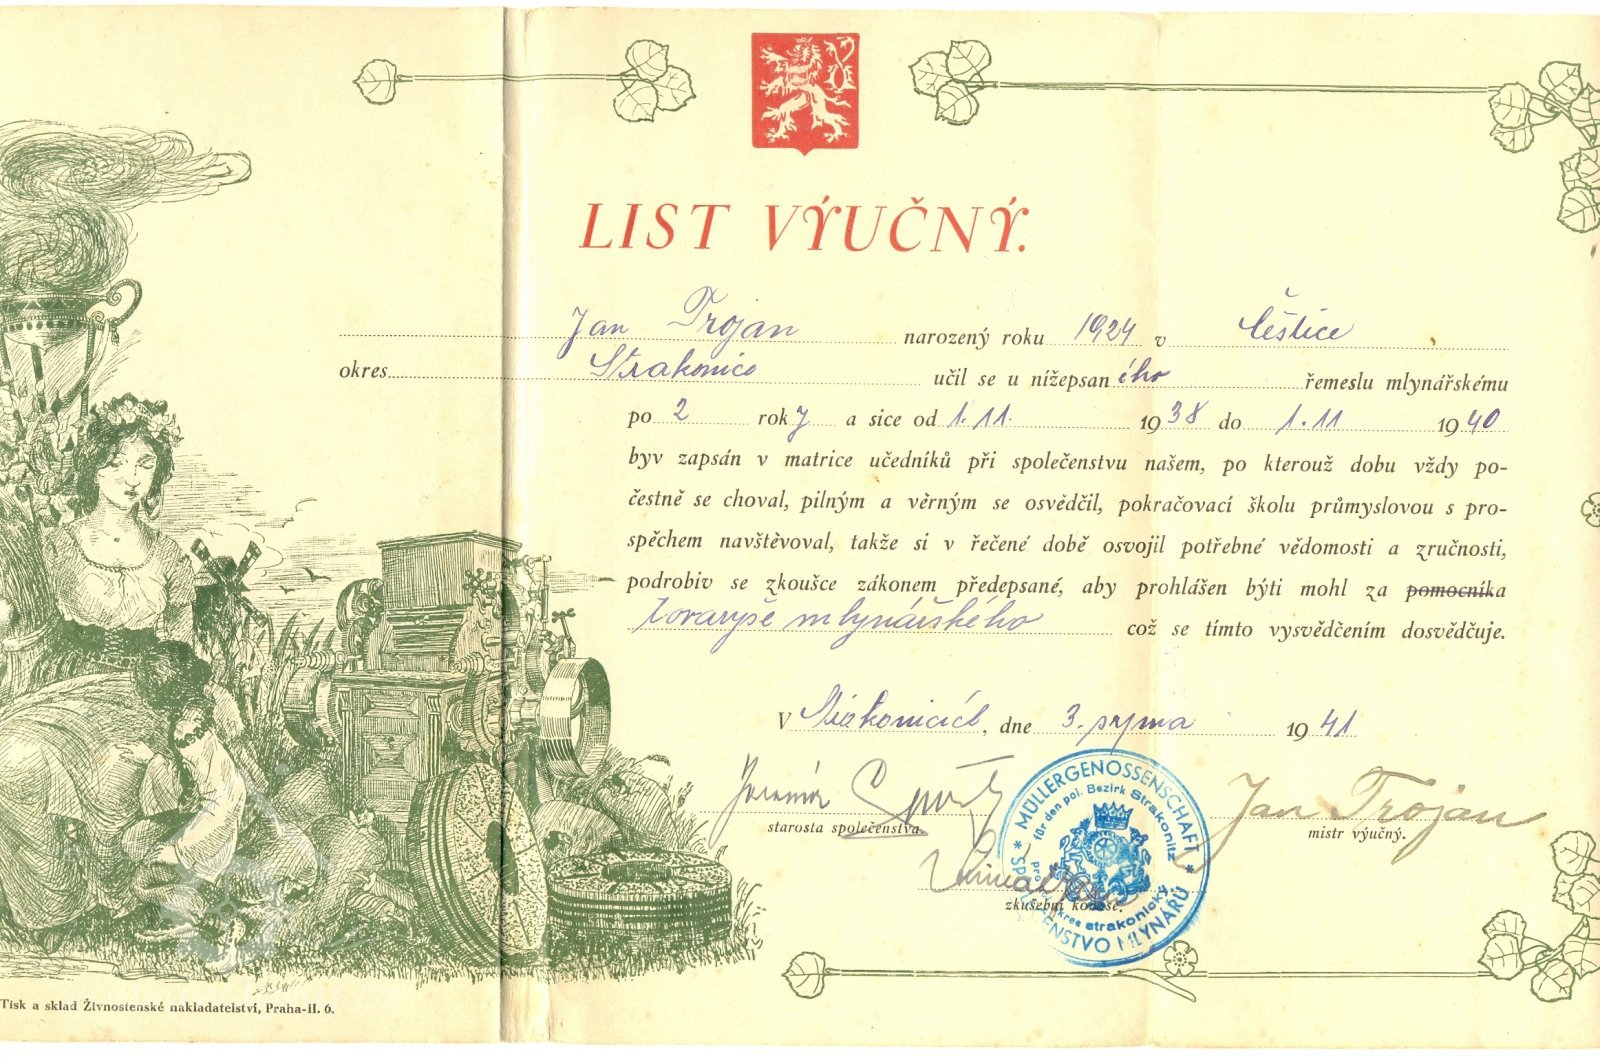 LIST VÝUČNÝ.
Jan Trojan narozený roku 1924 v Čěštice
okres Strakonice učil se u nížepsaného řemeslu mlynářskému
po 2 roky a sice od 1.11. 1938 do 1.11 1940
byv zapsán v matrice učedníků při společenstvu našem, po kterouž dobu vždy po-
čestně se choval, pilným a věrným se osvědčil, pokračovací školu průmyslovou s pro-
spěchem navštěvoval, takže si v řečené době osvojil potřebné vědomosti a zručnosti,
podrobiv se zkoušce zákonem předepsané, aby prohlášen býti mohl za pomocníka
tovaryše mlynářského což se tímto vysvědčením dosvědčuje.
V Strakonicích, dne 3. 1941
Jan Trojan
starosta společenstva
mistr výučný.
zkušební komise.
* MÜLLERGENOSSENSCHAFT *
für den pol. Bezirk Strakonitz
pro okres strakonický
SPOLEČENSTVO MLYNÁŘŮ
Tisk a sklad Živnostenské nakladatelství, Praha-II. 6.